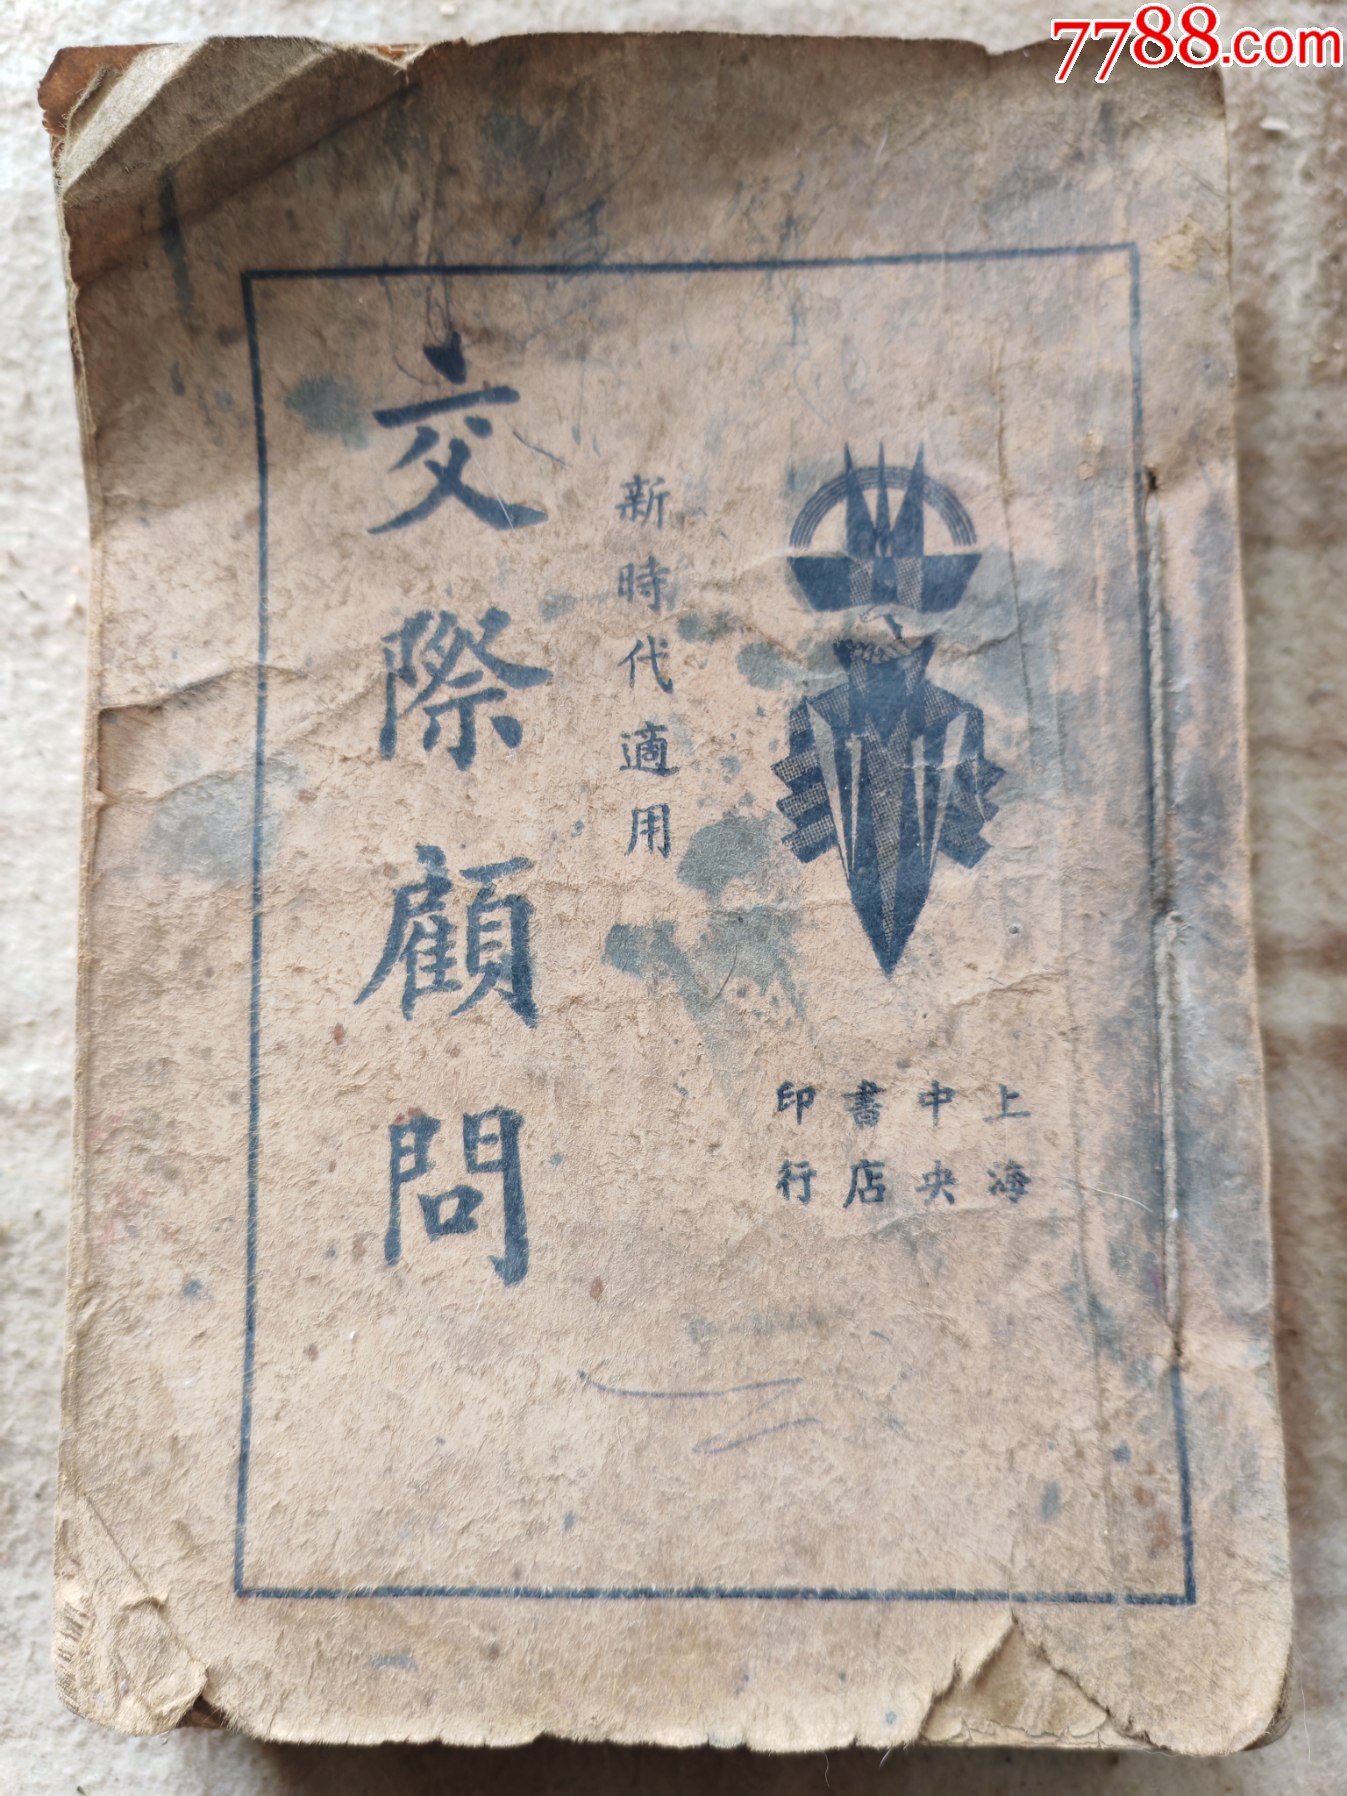 7788.com
上海
中央
書店
印行
新時代適用
交際顧問